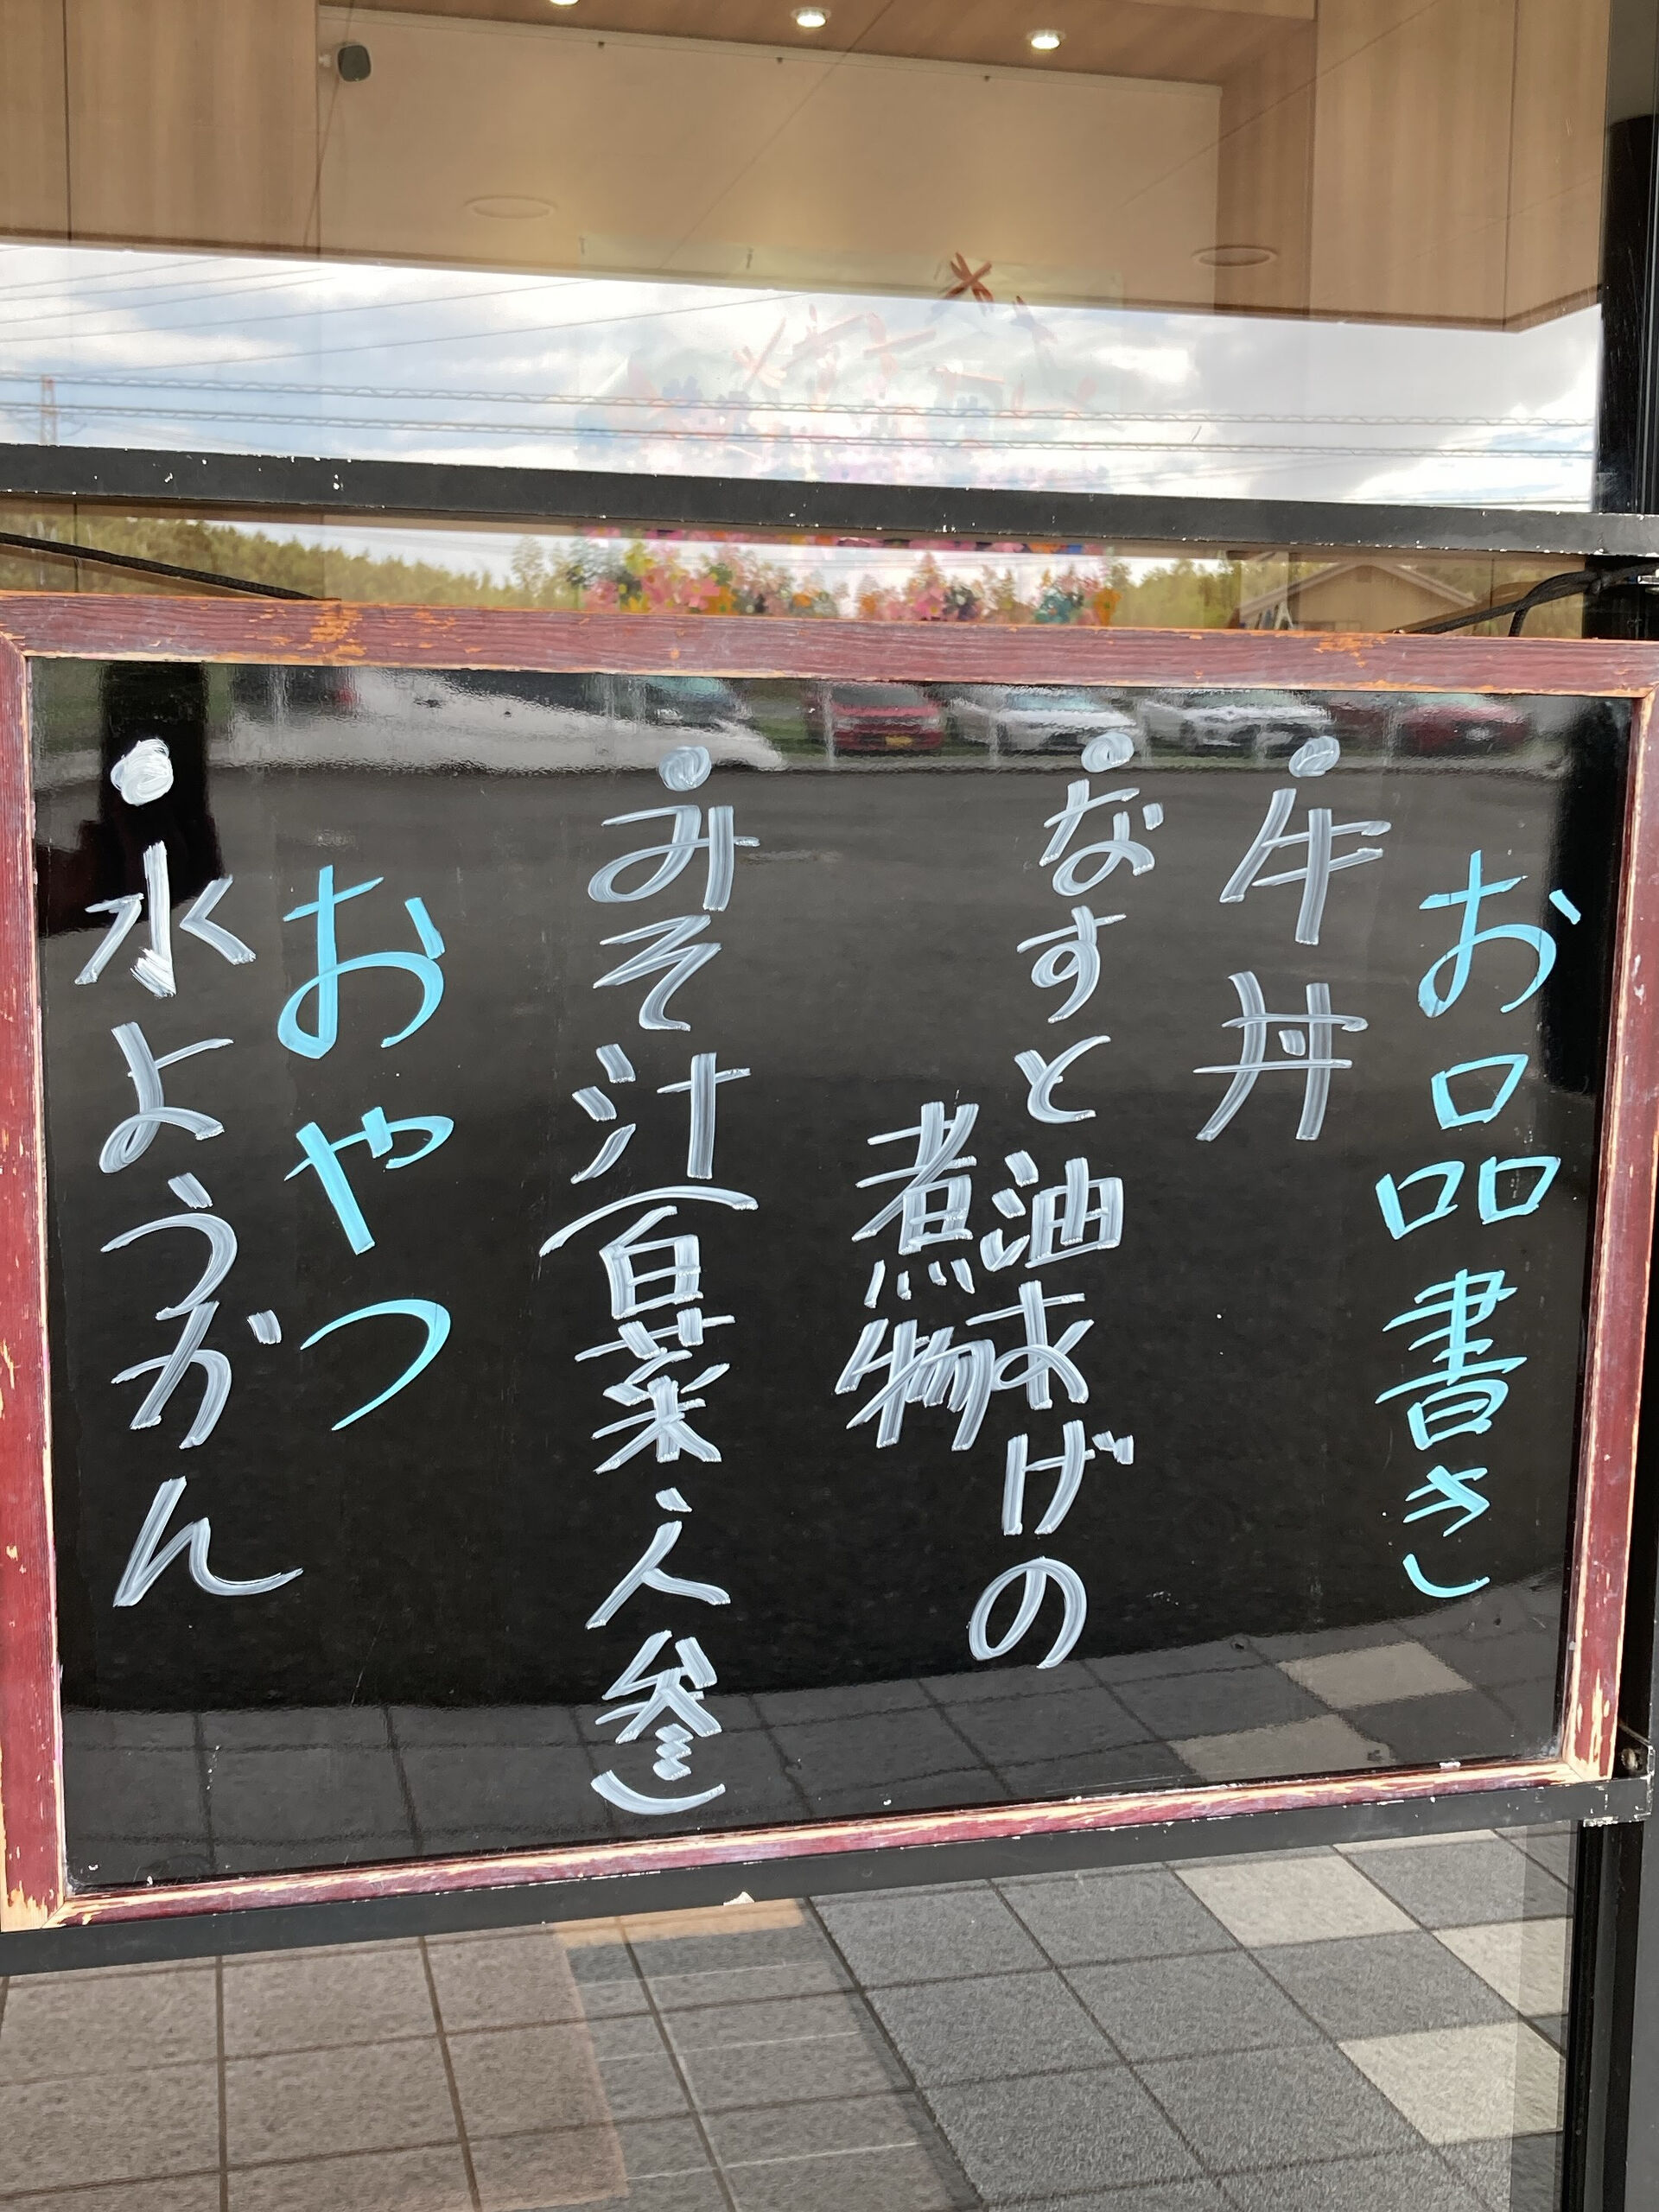 お品書き
・牛丼
・なすと油あげの
煮物
・みそ汁(白菜、人参)
おやつ
・水ようかん